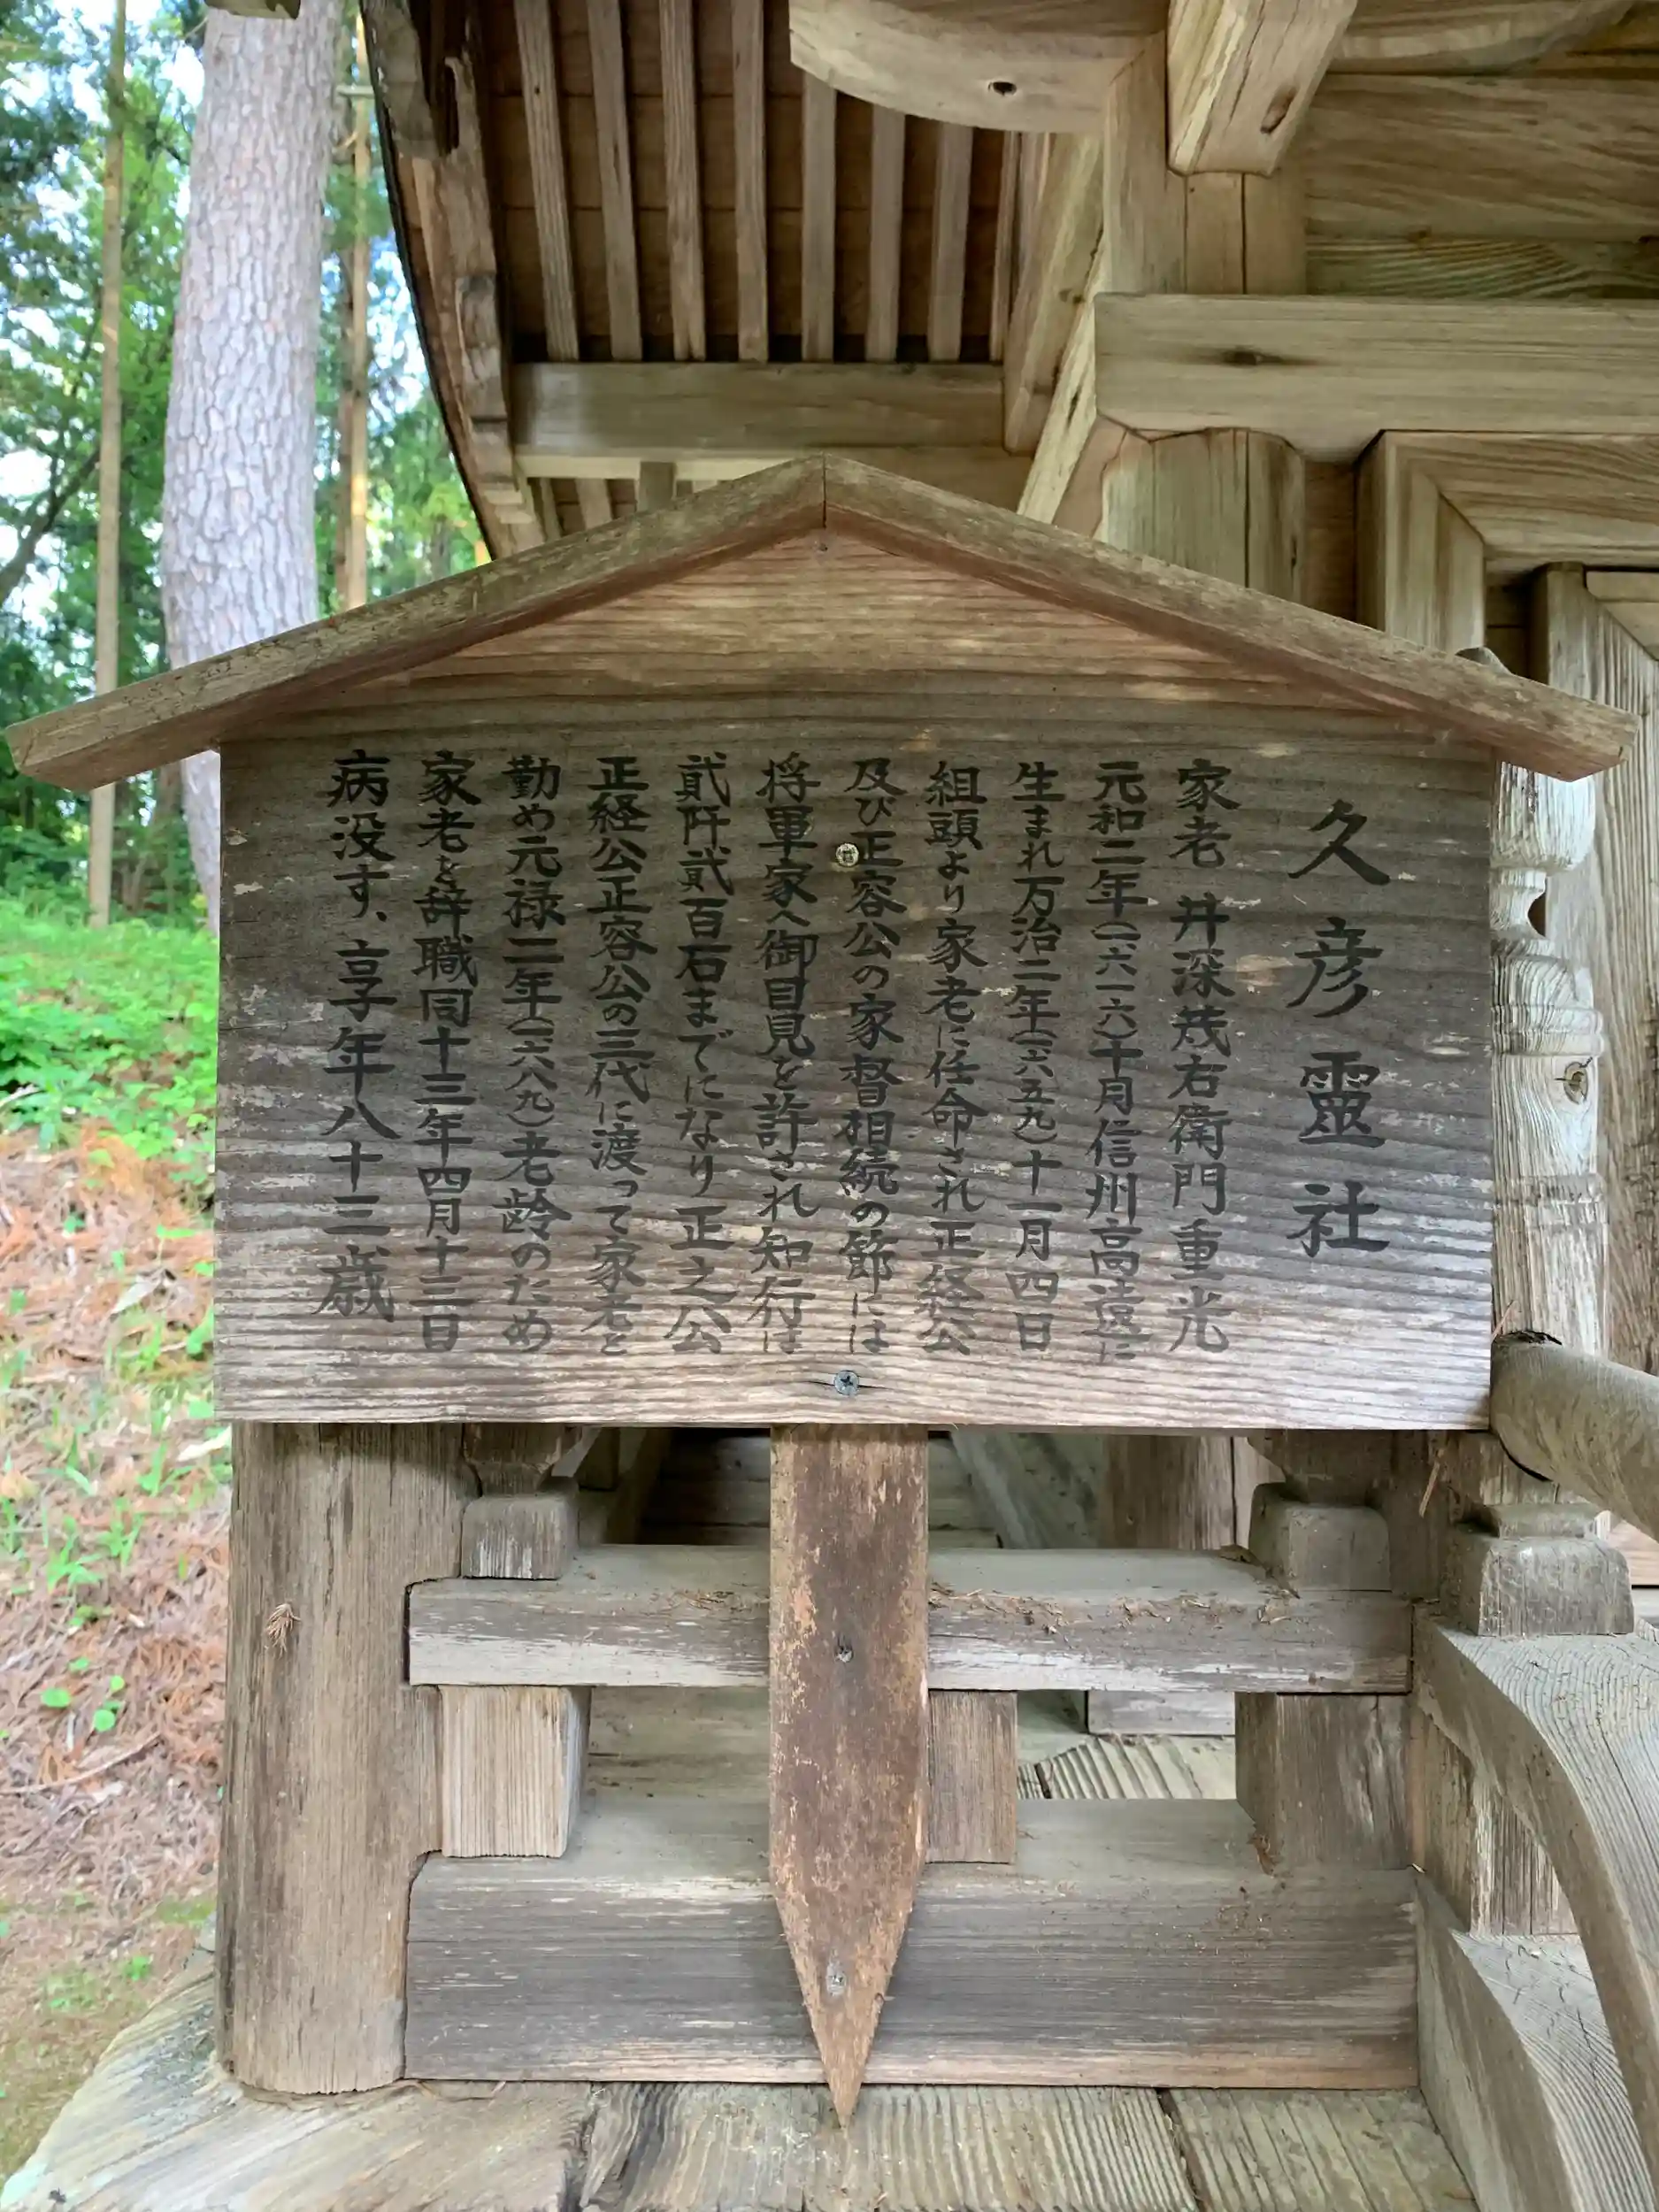 久彦靈社
家老 井深茂右衛門重光
元和二年(一六一六)十月信州高遠に
生まれ万治二年(一六五九)十一月四日
組頭より家老に任命され正経公
及び正容公の家督相続の節には
将軍家へ御目見を許され知行は
貮阡貮百石までになり正之公
正経公正容公の三代に渡って家老と
勤め元禄二年(一六八九)老齢のため
家老を辞職同十三年四月十三日
病没す、享年八十三歳